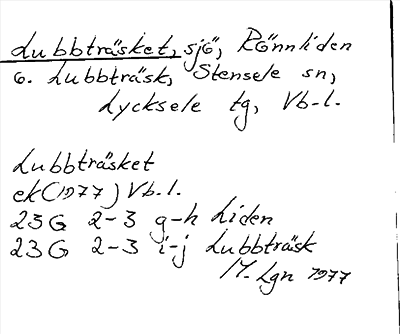 Lubbträsket, sjö, Rönnliden
o. Lubbträsk, Stensele sn,
Lycksele tg, Vb-l.
Lubbträsket
ek (1977) Vb-l.
23G 2-3 g-h Liden
23G 2-3 i-j Lubbträsk
M. Lgn 1977